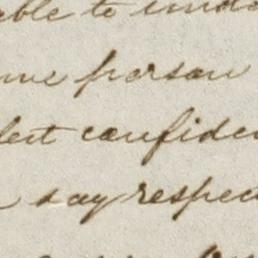 able to
me person
fect confiden
say respec